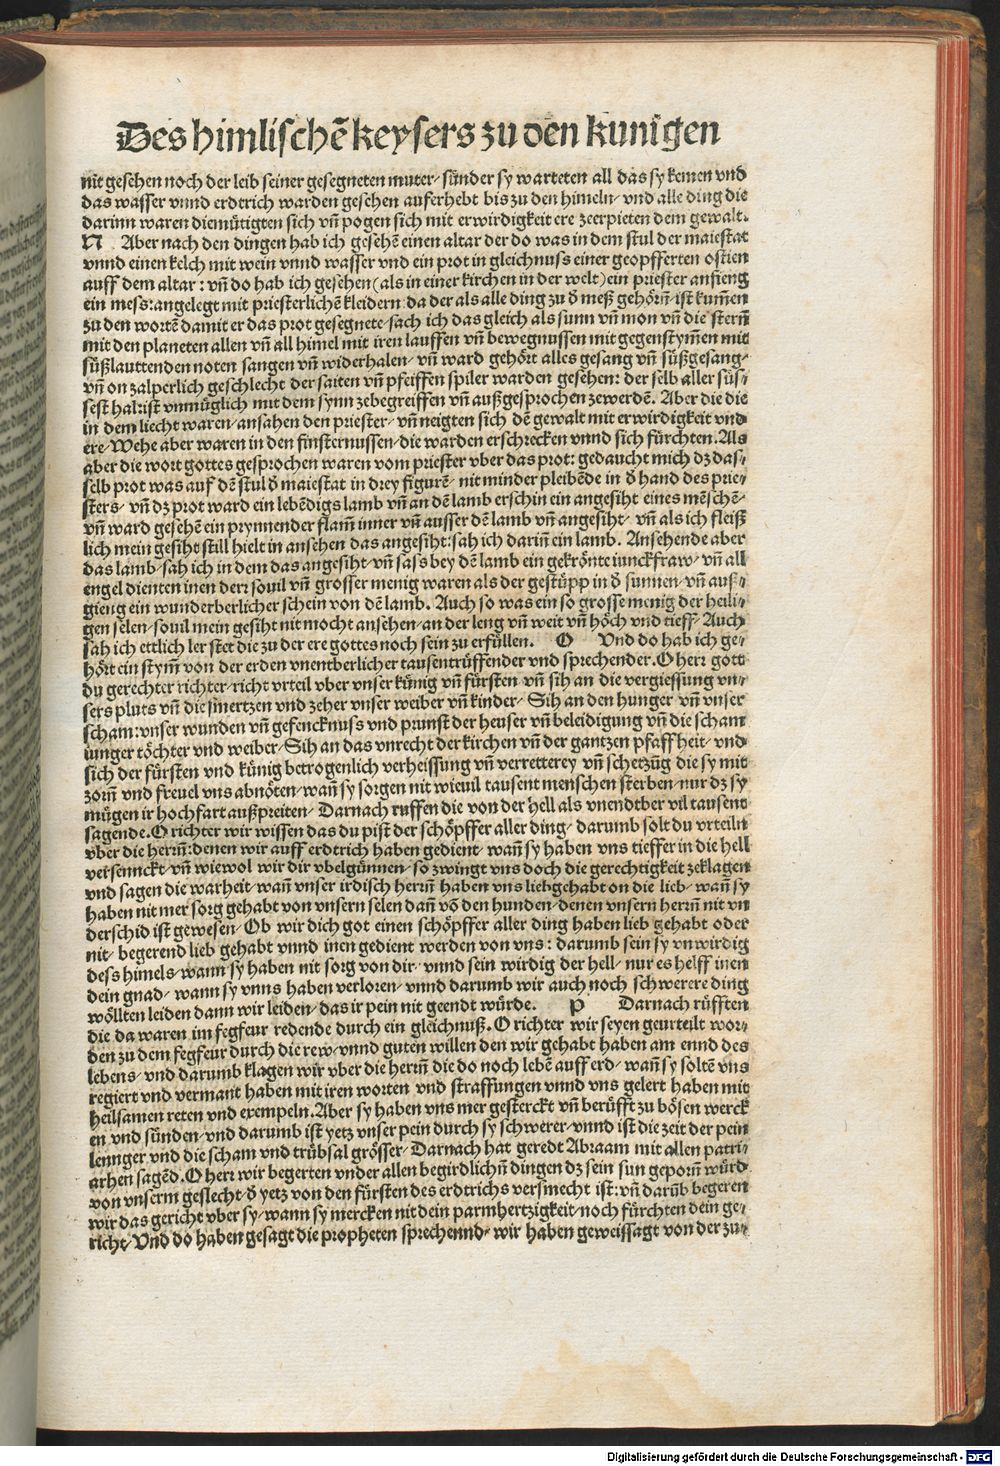 Des himlischē keysers zu den kunigen
nit gesehen noch der leib seiner gesegneten muter/ sunder sy warteten all das sy kemen vnd
das wasser vnnd erdtrich warden gesehen auferhebt bis zu den himeln/ vnd alle ding die
darinn waren diemütigten sich vn̄ pogen sich mit erwirdigkeit ere zeerpieten dem gewalt.
N Aber nach den dingen hab ich gesehē einen altar der do was in dem stul der maiestat
vnnd einen kelch mit wein vnnd wasser vnd ein prot in gleichnuss einer geopfferten ostien
auff dem altar: vn̄ do hab ich gesehen (als in einer kirchen in der welt) ein priester anfieng
ein mess: angelegt mit priesterlichē kleidern da der als alle ding zu d̄ meß gehörn̄ ist kum̄en
zu den wortē damit er das prot gesegnete/ sach ich das gleich als sunn vn̄ mon vn̄ die stern̄
mit den planeten allen vn̄ all himel mit iren lauffen vn̄ bewegnussen mit gegenstym̄en mit
süßlauttenden noten sangen vn̄ widerhalen/ vn̄ ward gehört alles gesang vn̄ süßgesang/
vn̄ on zalperlich geschlecht der saiten vn̄ pfeiffen spiler warden gesehen: der selb aller süs/
sest hal: ist vnmüglich mit dem synn zebegreiffen vn̄ außgesprochen zewerdē. Aber die die
in dem liecht waren/ ansahen den priester/ vn̄ neigten sich dē gewalt mit erwirdigkeit vnd
ere/ Wehe aber waren in den finsternussen/ die warden erschrecken vnnd sich fürchten. Als
aber die wort gottes gesprochen waren vom priester vber das prot: gedaucht mich dz das/
selb prot was auf dē stul d̄ maiestat in drey figurē/ nit minder pleibēde in d̄ hand des prie/
sters/ vn̄ dz prot ward ein lebēdigs lamb vn̄ an dē lamb erschin ein angesiht eines mēschē/
vn̄ ward gesehē ein prynnender flam̄ inner vn̄ ausser dē lamb vn̄ angesiht/ vn̄ als ich fleiß
lich mein gesiht still hielt in ansehen das angesiht: sah ich darin̄ ein lamb. Ansehende aber
das lamb/ sah ich in dem das angesiht/ vn̄ sass bey dē lamb ein gekrönte iunckfraw/ vn̄ all
engel dienten inen der: souil vn̄ grosser menig waren als der gestüpp in d̄ sunnen/ vn̄ auß/
gieng ein wunderberlicher schein von dē lamb. Auch so was ein so grosse menig der heili/
gen selen/ souil mein gesiht nit mocht ansehen/ an der leng vn̄ weit vn̄ höch vnd tieff/ Auch
sah ich ettlich ler stet die zu der ere gottes noch sein zu erfüllen. O Vnd do hab ich ge/
hört ein stym̄ von der erden vnentberlicher tausentrüffender vnd sprechender. O herr gott
du gerechter richter/ richt vrteil vber vnser künig vn̄ fürsten vn̄ sih an die vergiessung vn/
sers pluts vn̄ die smertzen vnd zeher vnser weiber vn̄ kinder/ Sih an den hunger vn̄ vnser
scham: vnser wunden vn̄ gefencknuss vnd prunst der heuser vn̄ beleidigung vn̄ die scham
iunger töchter vnd weiber/ Sih an das vnrecht der kirchen vn̄ der gantzen pfaffheit/ vnd
sich der fürsten vnd künig betrogenlich verheissung vn̄ verretterey vn̄ schetzüg die sy mit
zorn̄ vnd freuel vns abnöten/ wan̄ sy sorgen nit wieuil tausent menschen sterben/ nur dz sy
mügen ir hochfart außpreiten/ Darnach ruffen die von der hell als vnendtber vil tausent
sagende. O richter wir wissen das du pist der schöpffer aller ding/ darumb solt du vrteiln
vber die herrn̄: denen wir auff erdtrich haben gedient/ wan̄ sy haben vns tieffer in die hell
versennckt/ vn̄ wiewol wir dir vbelgünnen/ so zwingt vns doch die gerechtigkeit zeklagen
vnd sagen die warheit/ wan̄ vnser irdisch herrn̄ haben vns liebgehabt on die lieb/ wan̄ sy
haben nit mer sorg gehabt von vnsern selen dan̄ vō den hunden/ denen vnsern herrn̄ nit vn
derschid ist gewesen/ Ob wir dich got einen schöpffer aller ding haben lieb gehabt oder
nit/ begerend lieb gehabt vnnd inen gedient werden von vns: darumb sein sy vnwirdig
dess himels/ wann sy haben nit sorg von dir/ vnnd sein wirdig der hell/ nur es helff inen
dein gnad/ wann sy vnns haben verloren/ vnnd darumb wir auch noch schwerere ding
wöllten leiden dann wir leiden/ das ir pein nit geendt würde. P Darnach rüfften
die da waren im fegfeur redende durch ein gleichnuß. O richter wir seyen geurteilt wor/
den zu dem fegfeur durch die rew/ vnnd guten willen den wir gehabt haben am ennd des
lebens/ vnd darumb klagen wir vber die herrn̄ die do noch lebē auff erd/ wan̄ sy soltē vns
regiert vnd vermant haben mit iren worten vnd straffungen vnnd vns gelert haben mit
heilsamen reten vnd exempeln. Aber sy haben vns mer gesterckt vn̄ berüfft zu bösen werck
en vnd sünden/ vnd darumb ist yetz vnser pein durch sy schwerer/ vnnd ist die zeit der pein
lennger vnd die scham vnd trübsal grösser/ Darnach hat geredt Abraam mit allen patri/
arhen sagēd. O herr wir begerten vnder allen begirdlichn̄ dingen dz sein sun geporn̄ würd
von vnserm geslecht/ d̄ yetz von den fürsten des erdtrichs versmecht ist: vn̄ darūb begeren
wir das gericht vber sy/ wann sy mercken nit dein parmhertzigkeit/ noch fürchten dein ge/
richt/ Vnd do haben gesagt die propheten sprechennd/ wir haben geweissagt von der zu/
Digitalisierung gefördert durch die Deutsche Forschungsgemeinschaft - DFG